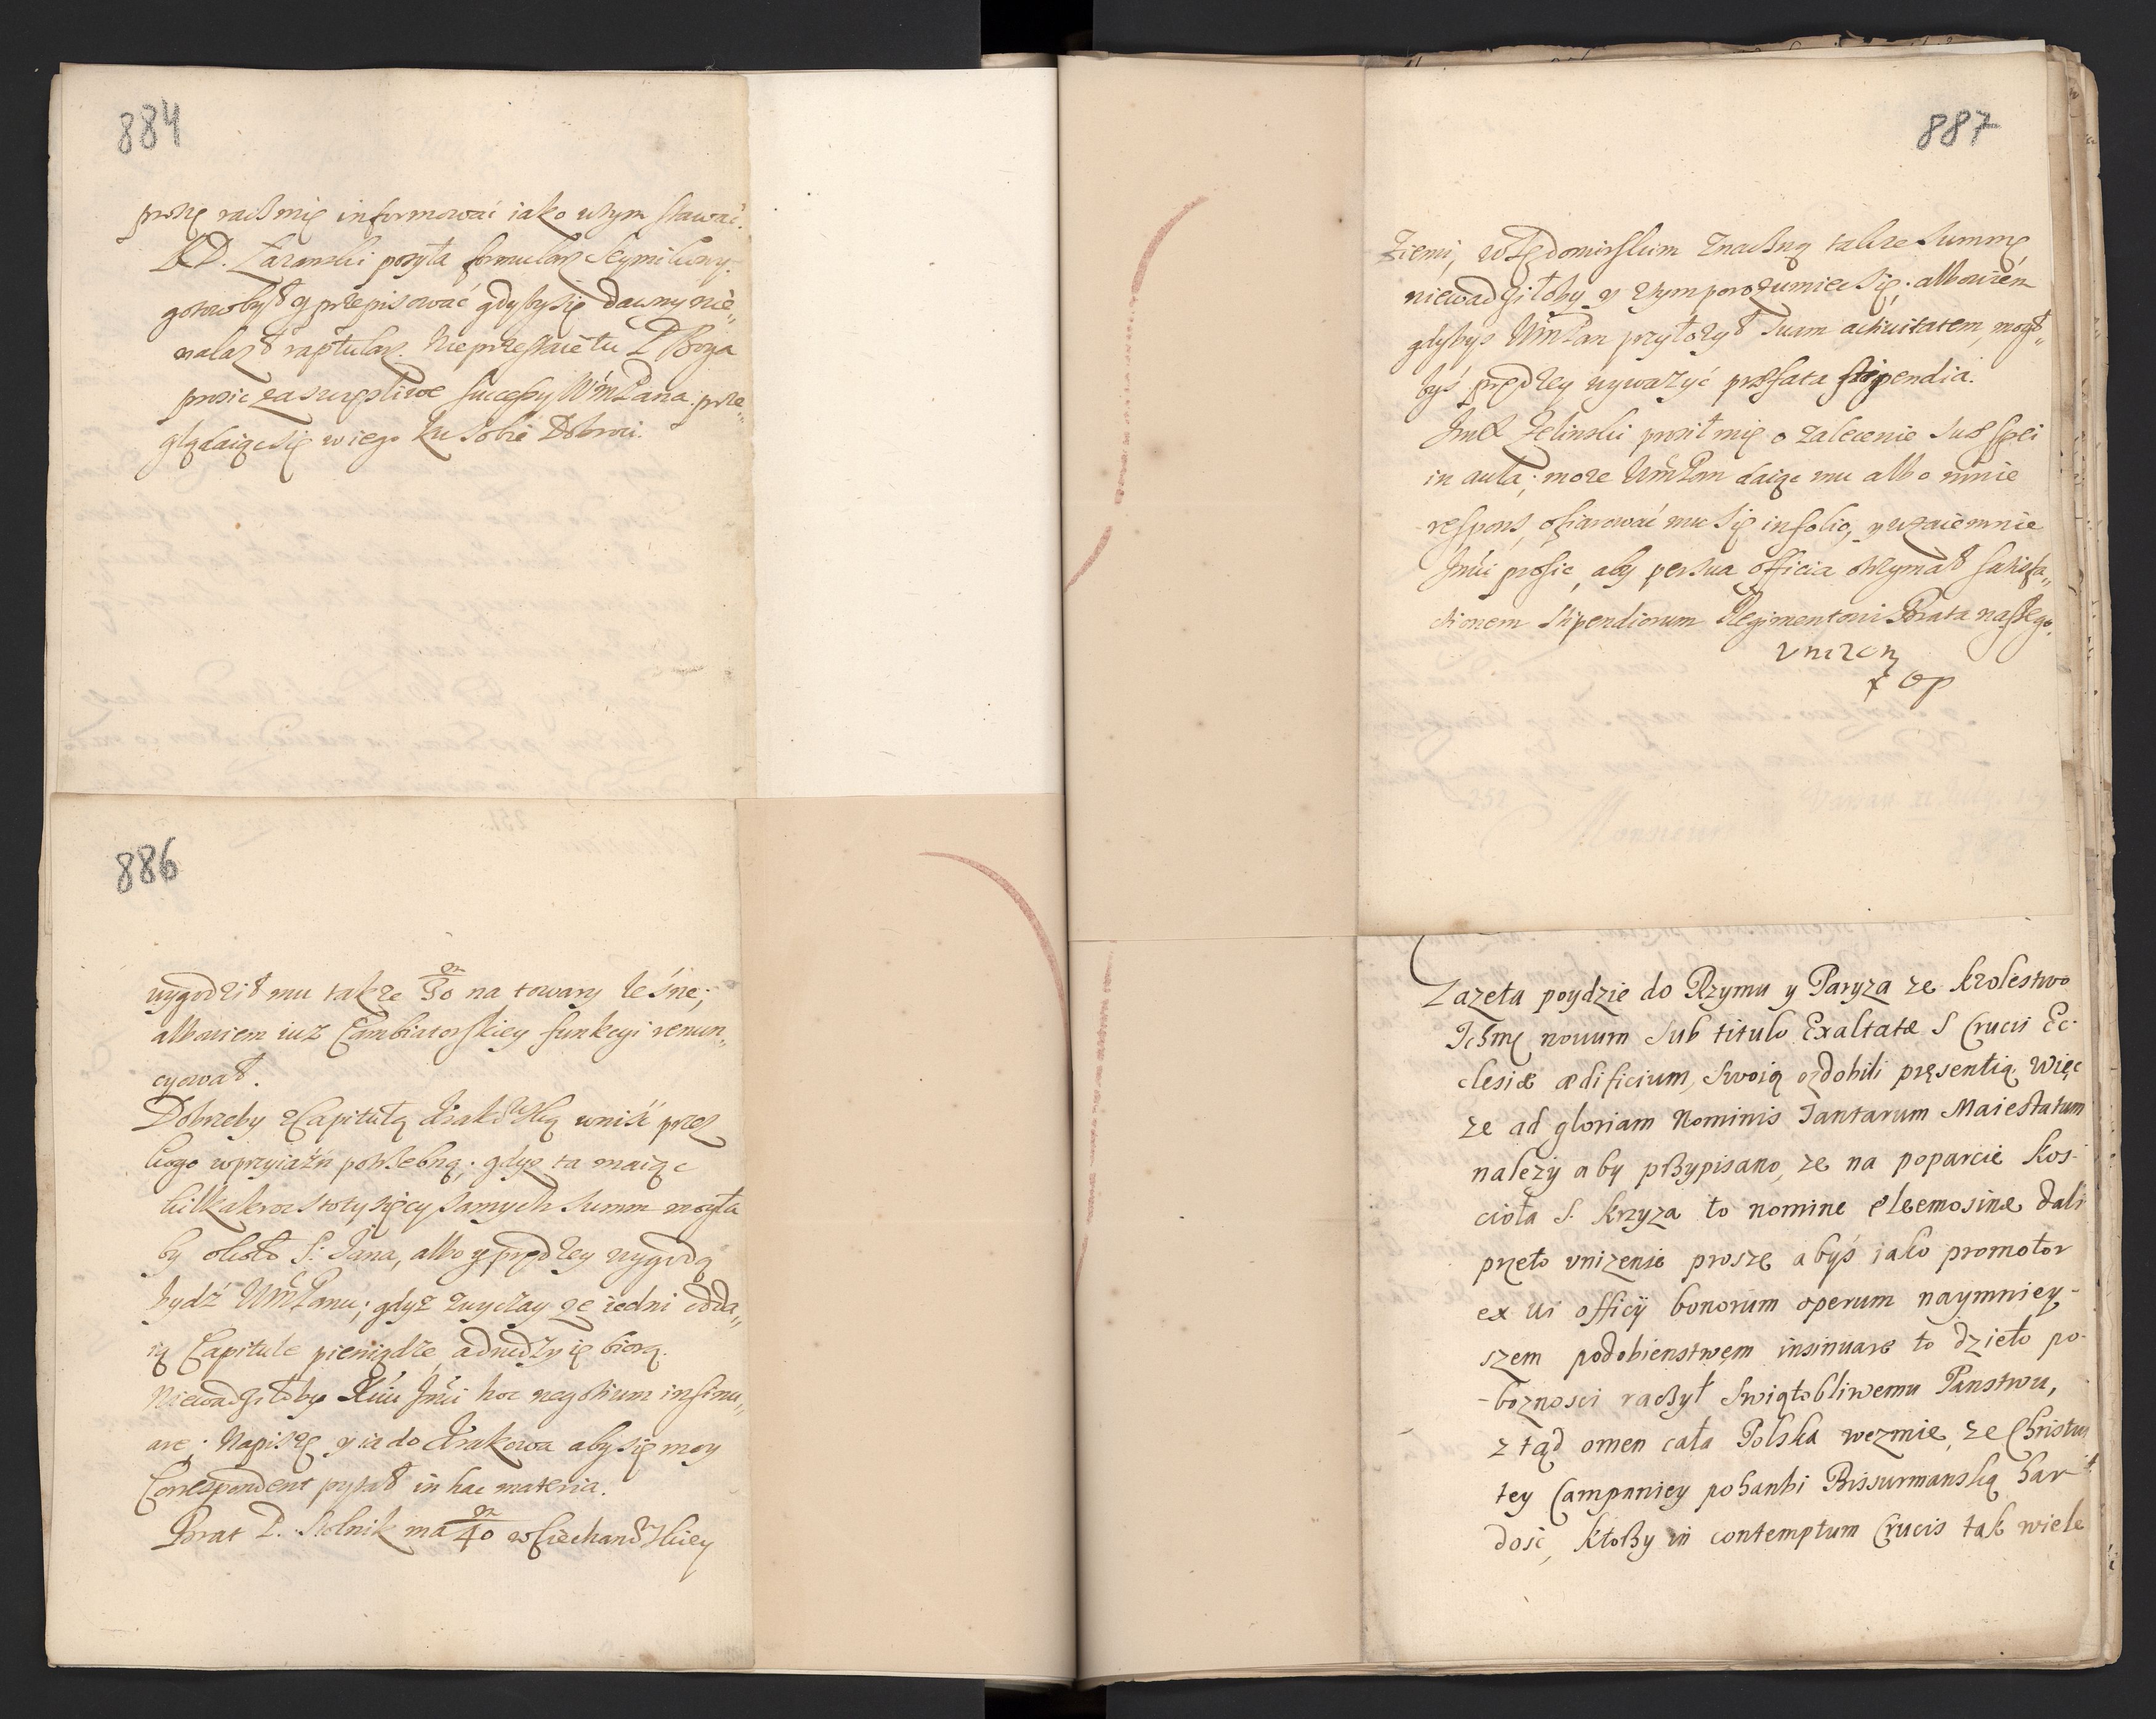 884
proszę racz mię informować iako w tym stawać.
P. Łazanski posyła formularz Seymikowy.
gotow był y przepisować gdyby się dawny nie„
nalazł raptularz. Nie przestaię tu P. Boga
prosic za szczęsliwe successy WMPana. prze„
glądaiąc się w iego ku sobie Dobroci.
886
wygodził mu także m/30 na towary leśne;
albowiem iuz Cambiatorskiey funkcyi renun„
cyował.
Dobrzeby z Capitułą Krakowską wniść przez
kogo w przyiaźń potrzebną; gdyż ta maiąc
kilkakroc sto tysięcy samych summ mogła
by około S: Jana, albo y prędzey wygodą
bydź WMPanu; gdyż zwyczay że iedni odda„
ią Capitule pieniądze, a drudzy ie biorą.
Niewadziłoby Xciu Jmci hoc negotium insinu„
are; Napiszę y ia do Krakowa aby się moy
Correspondent pytał in hac materia.
Brat P. Stolnik ma m/40 w Ciechanowskiey
887
Ziemi, w Sędomirskim znaczną także summę
niewadziłoby y z tym porozumieć się. albowiem
gdybys WMPan przyłożył suam activitatem, mogł„
byś prędzey wyważyć præfata stipendia.
Jmć Zelinski prosił mię o zalecenie suæ spei
in aula; może WMPan daiąc mu albo mnie
respons, ofiarować mu się in folio, y wzaiemnie
Jmci prosic, aby per sua officia otrzymał satisfa„
ctionem stipendiorum Regimentowi Brata naszego.
Vnizeny
X OP
Gazeta poydzie do Rzymu y Paryza ze krolestwo
Ichmę nouum sub titulo Exaltatæ S Crucis Ec-
clesiæ ædificium, swoią ozdobili pręsentią. Więc
ze ad gloriam Nominis Tantarum Maiestatum
nalezy aby przypisano, ze na poparcie Kos-
cioła S. Krzyza to nomine eleemosinæ dali
przeto vnizenie proszę abyś iako promotor
ex vi officij bonorum operum naymniey-
szem podobienstwęm insinuare to dzieło po-
-boznosci raczył Swiątobliwemu Panstwu,
z tąd omen cała Polska wezmie, ze Christus
tey Campaniey pohanbi Bissurmanską har-
dosc, ktorzy in contemptum Crucis tak wiele